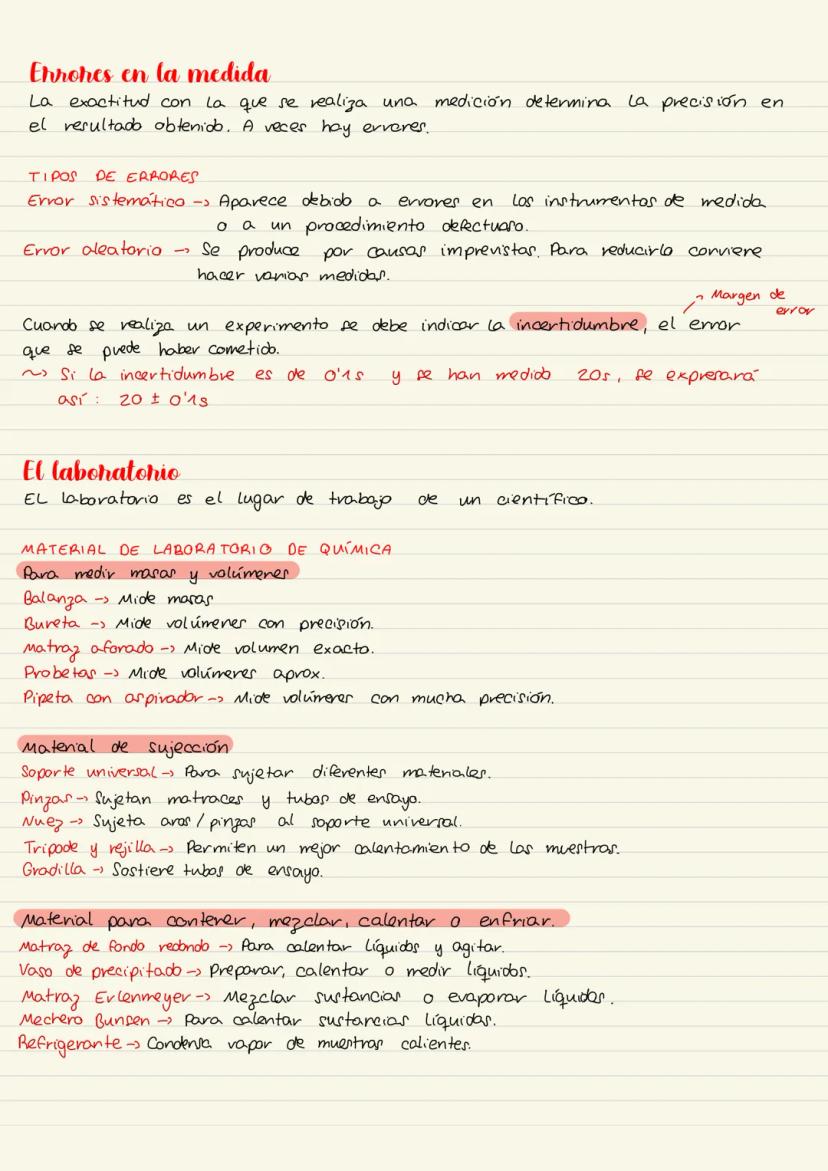 Errores en la medida
La exactitud con la que se realiza una medición determina la precisión en
el resultado obtenido. A veces hay errores.
TIPOS DE ERRORES
Error sistemático -> Aparece debido a errores en los instrumentos de medida
o a un procedimiento defectuoso.
Error aleatorio -> Se produce por causas imprevistas. Para reducirlo conviene
hacer varias medidas.
-> Margen de
error
Cuando se realiza un experimento se debe indicar la incertidumbre, el error
que se puede haber cometido.
~> Si la incertidumbre es de 0's y se han medido 20s, se expresará
así: 20 ± 0'1s
El laboratorio
EL laboratorio es el lugar de trabajo de un científico.
MATERIAL DE LABORATORIO DE QUÍMICA
Para medir masas y volúmenes
Balanza -> Mide masas
Bureta -> Mide volúmenes con precisión.
Matraz aforado -> Mide volumen exacto.
Probetas -> Mide volúmenes aprox.
Pipeta con aspirador -> Mide volúmenes con mucha precisión.
Material de sujección
Soporte universal -> Para sujetar diferentes materiales.
Pinzas -> Sujetan matraces y tubos de ensayo.
Nuez -> Sujeta aros / pinzas al soporte universal.
Trípode y rejilla -> Permiten un mejor calentamiento de las muestras.
Gradilla -> Sostiene tubos de ensayo.
Material para contener, mezclar, calentar o enfriar.
Matraz de fondo redondo -> Para calentar líquidos y agitar.
Vaso de precipitado -> Preparar, calentar o medir líquidos.
Matraz Erlenmeyer -> Mezclar sustancias o evaporar líquidos.
Mechero Bunsen -> Para calentar sustancias líquidas.
Refrigerante -> Condensa vapor de muestras calientes.